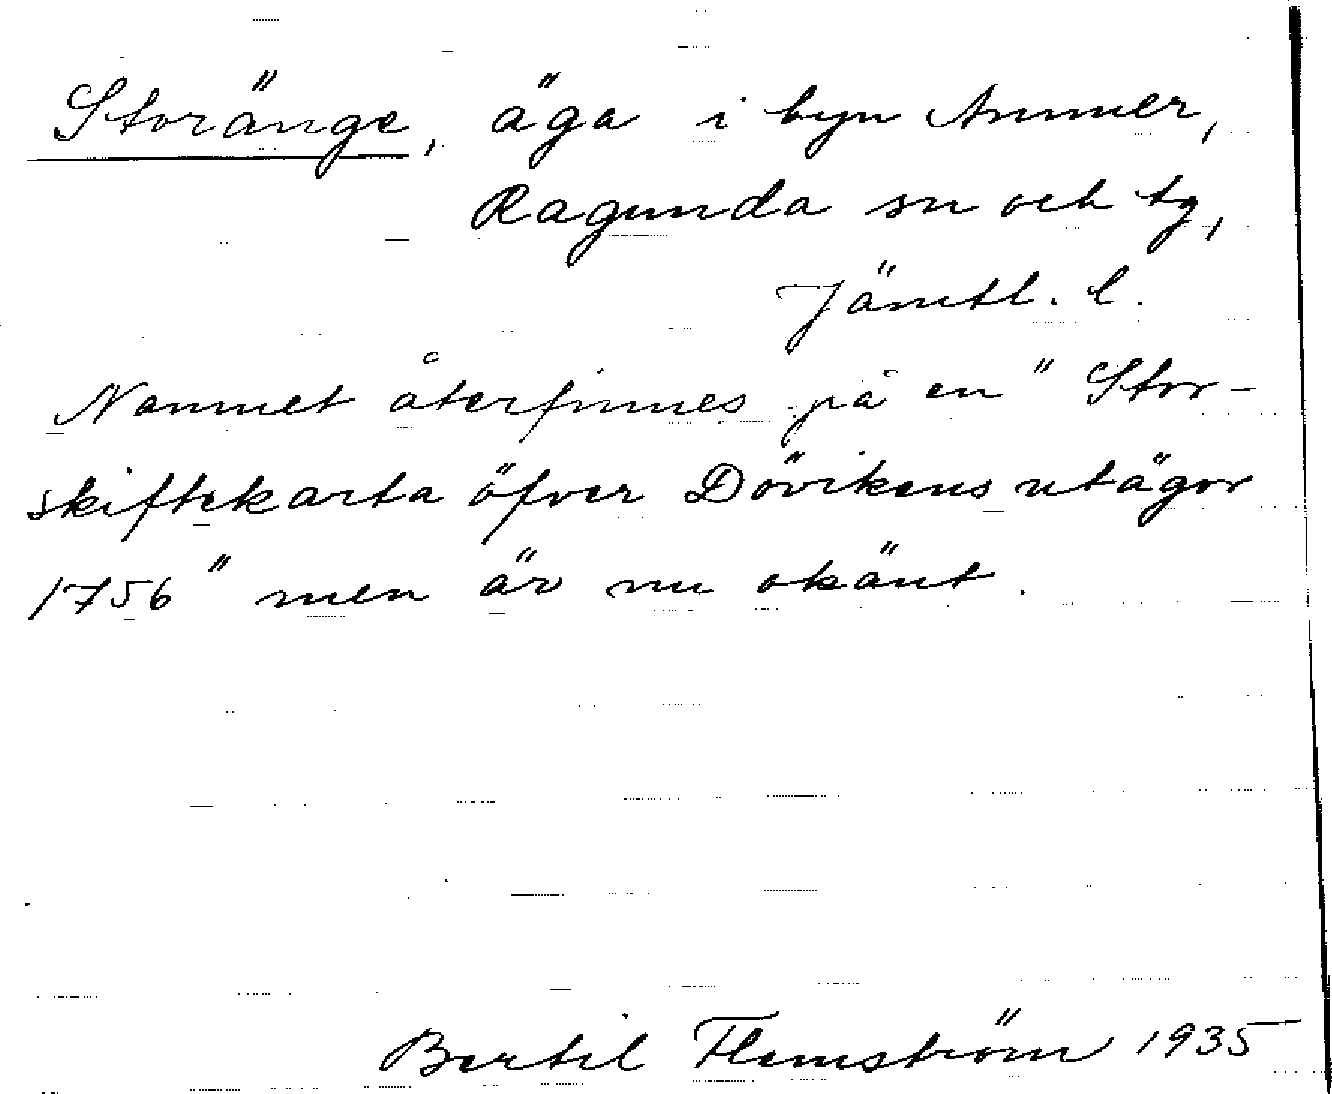 Storänge, äga i byn Ammer,
Ragunda sn och tg,
Jämtl. l.
Namnet återfinnes på en "Stor-
skiftekarta öfver Dövikens utägor
1756" men är nu okänt.
Bertil Flemström 1935